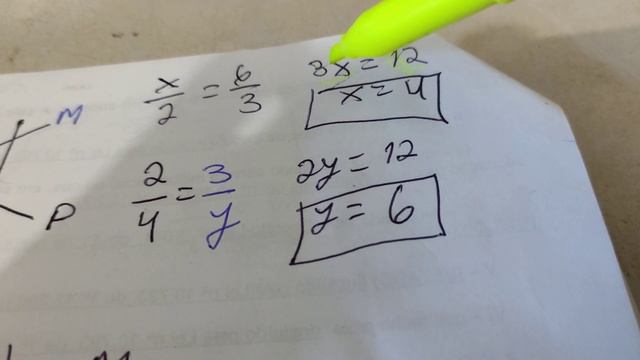 x/2 = 6/3
3x = 12
x = 4
M
2/4 = 3/y
2y = 12
y = 6
P
M